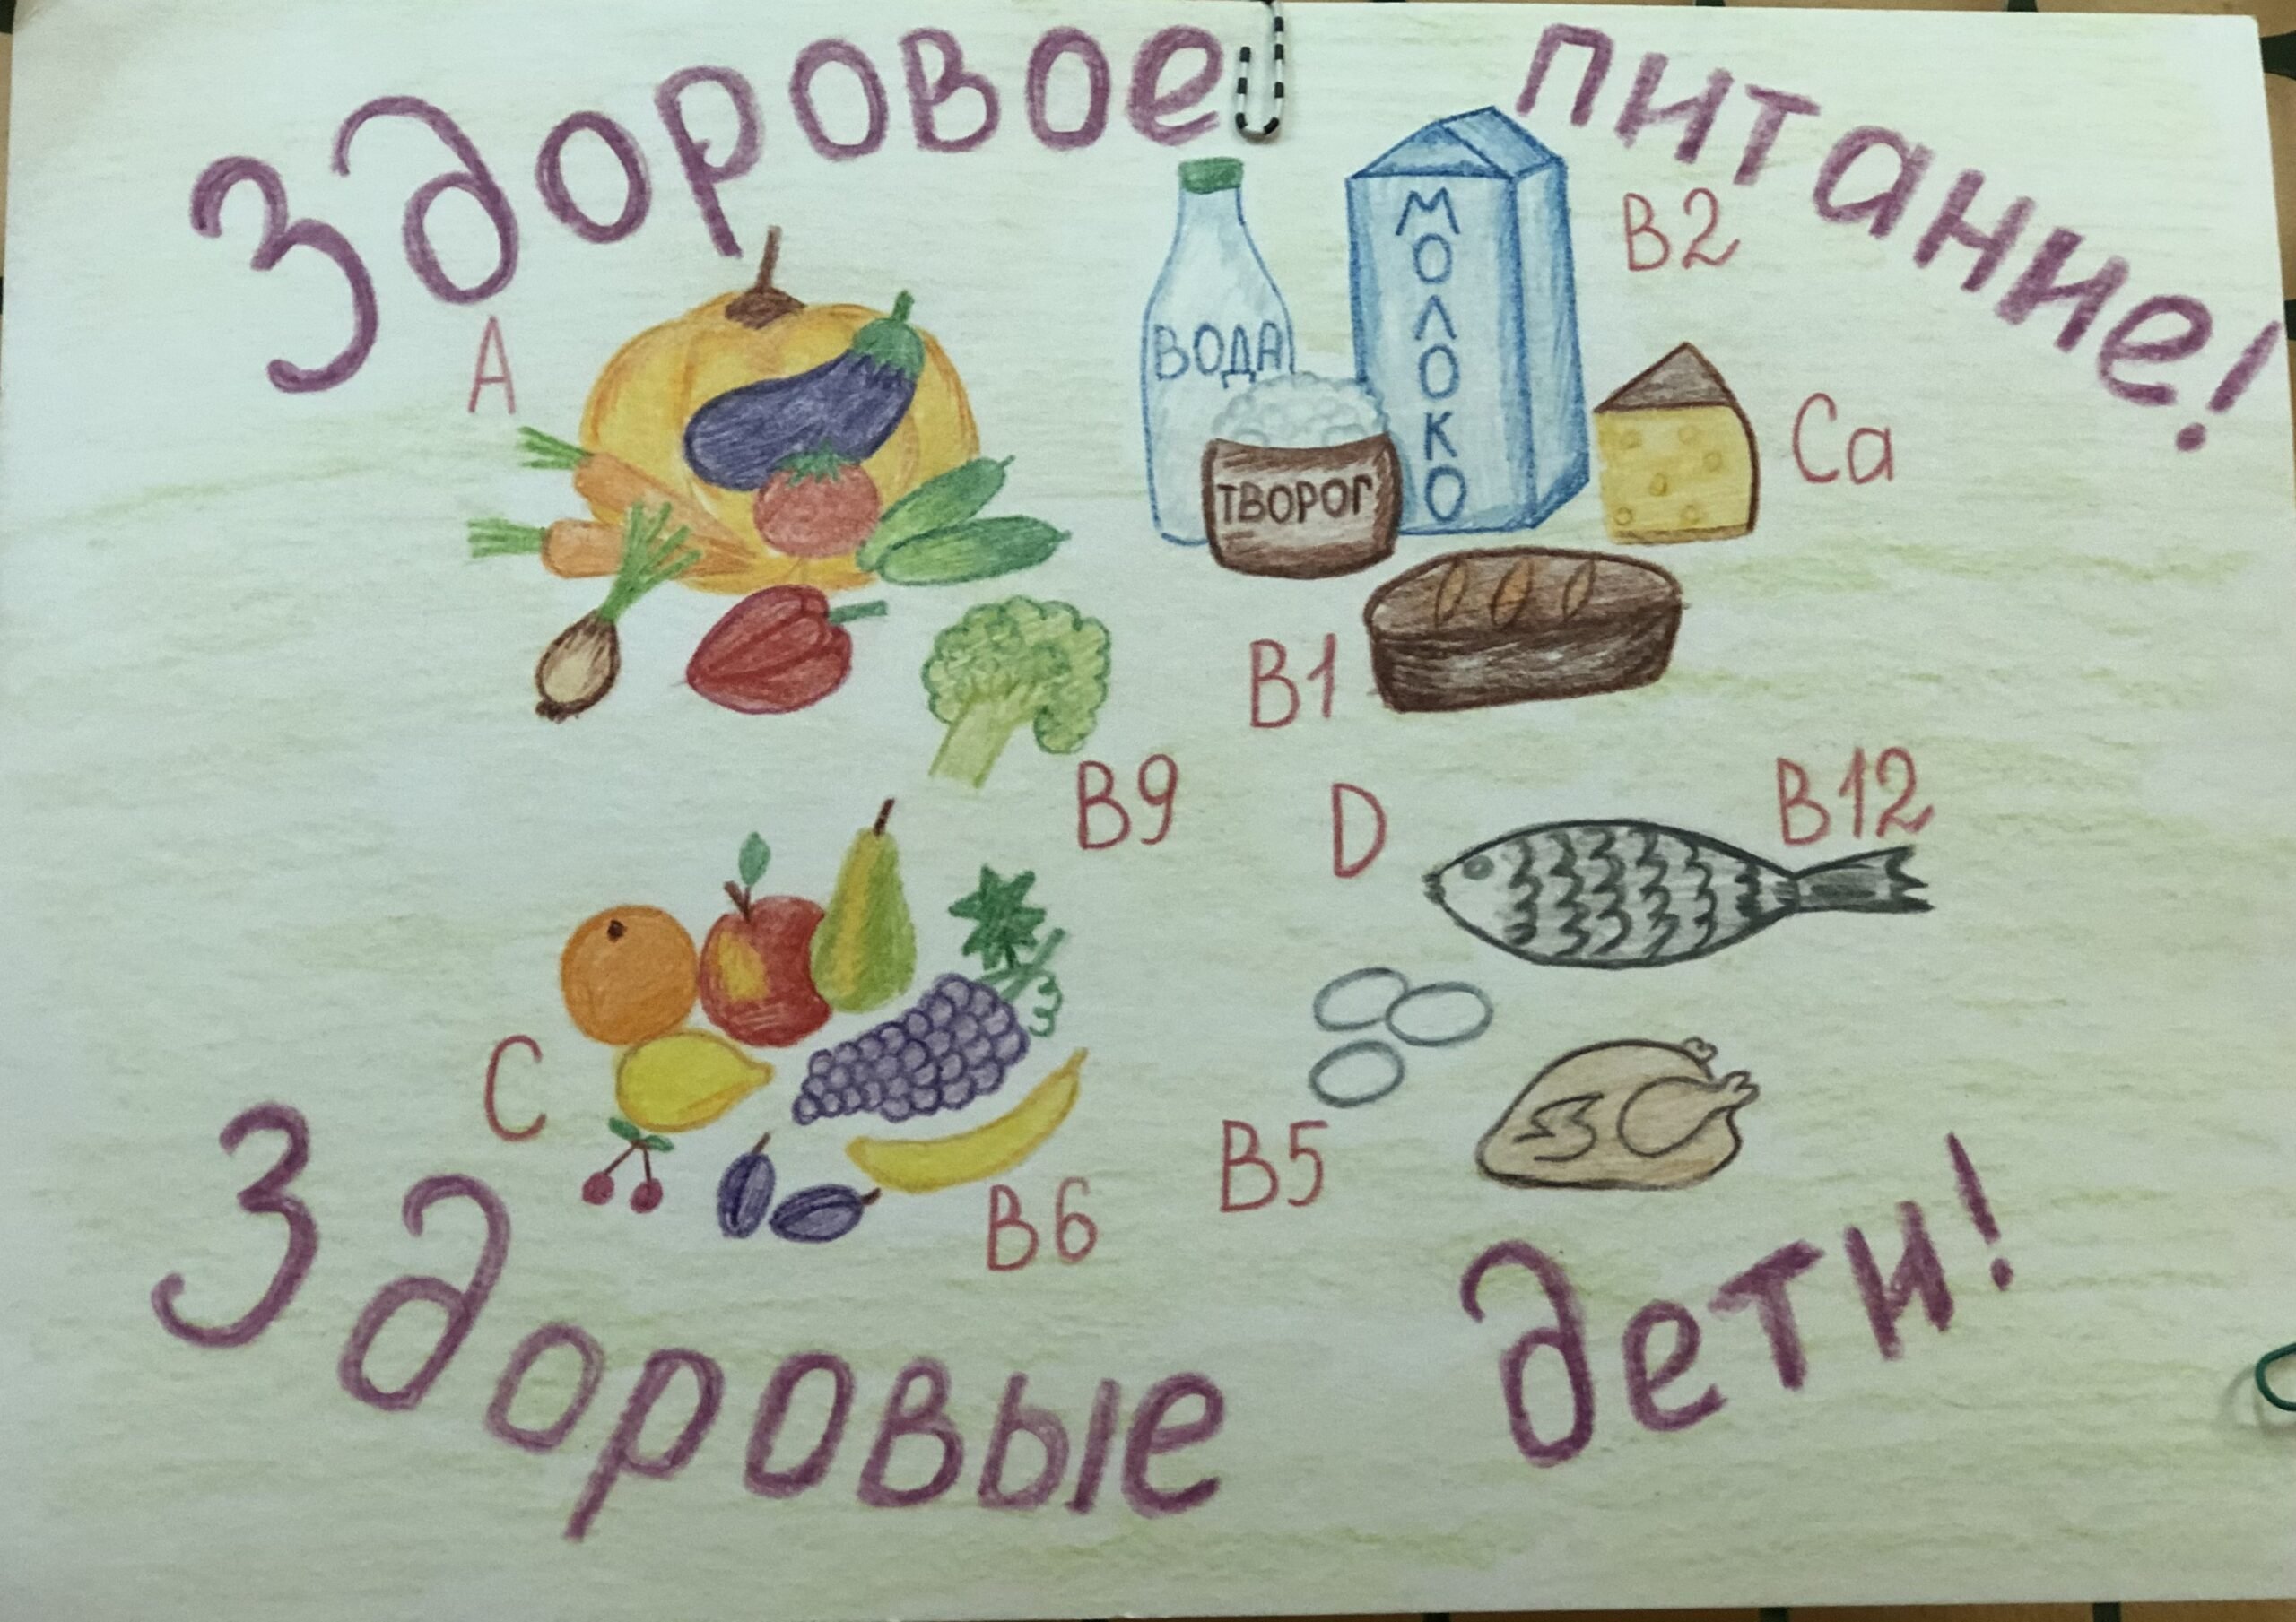 Здоровое питание!
A
ВОДА
МОЛОКО
B2
ТВОРОГ
Ca
B1
B9
D
B12
C
B5
B6
Здоровые дети!